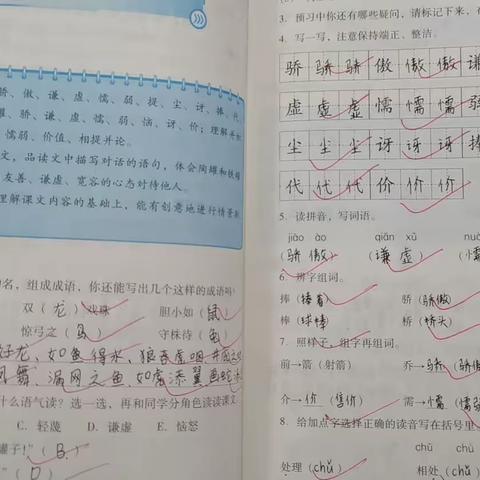 骄、傲、谦、虚、懦、弱、提、尘、讶、捧、代
骄、谦、虚、懦、弱、恼、讶、价；理解并积
懦弱、价值、相提并论。
文，品读文中描写对话的语句，体会陶罐和铁罐
友善、谦虚、宽容的心态对待他人。
理解课文内容的基础上，能有创意地进行情景剧
名，组成成语，你还能写出几个这样的成语吗？
双（龙）戏珠 胆小如（鼠）
惊弓之（鸟） 守株待（兔）
好龙、如鱼得水、狼吞虎咽、井底之
凤舞、漏网之鱼、如虎添翼、画蛇
什么语气读？选一选，再和同学分角色读读课文
C. 轻蔑 D. 谦虚 E. 恼怒
罐子!”（B）
”（D）
3. 预习中你还有哪些疑问，请标记下来，
4. 写一写，注意保持端正、整洁。
骄 骄 骄 傲 傲 傲 谦
虚 虚 虚 懦 懦 懦 弱
尘 尘 尘 讶 讶 讶 捧
代 代 代 价 价 价
5. 读拼音，写词语。
jiāo ào qiān xū nuò
（骄傲） （谦虚） （懦
6. 辨字组词。
捧（捧着） 骄（骄傲）
棒（球棒） 桥（桥头）
7. 照样子，组字再组词。
前→箭（射箭） 乔→骄（骄傲
介→价（售价） 需→懦（懦弱
8. 给加点字选择正确的读音写在括号里
chǔ chù
处理（chǔ） 相处（